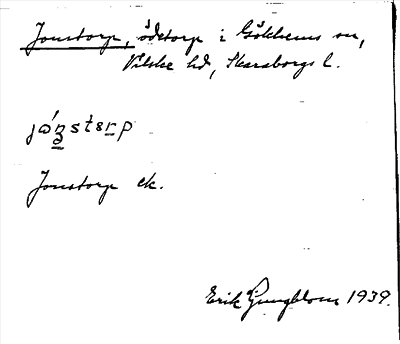 Jonstorp, ödetorp i Gökhems sn,
Vilske hd, Skaraborgs l.
jónstorp
Jonstorp ek.
Erik Ljungblom 1939.